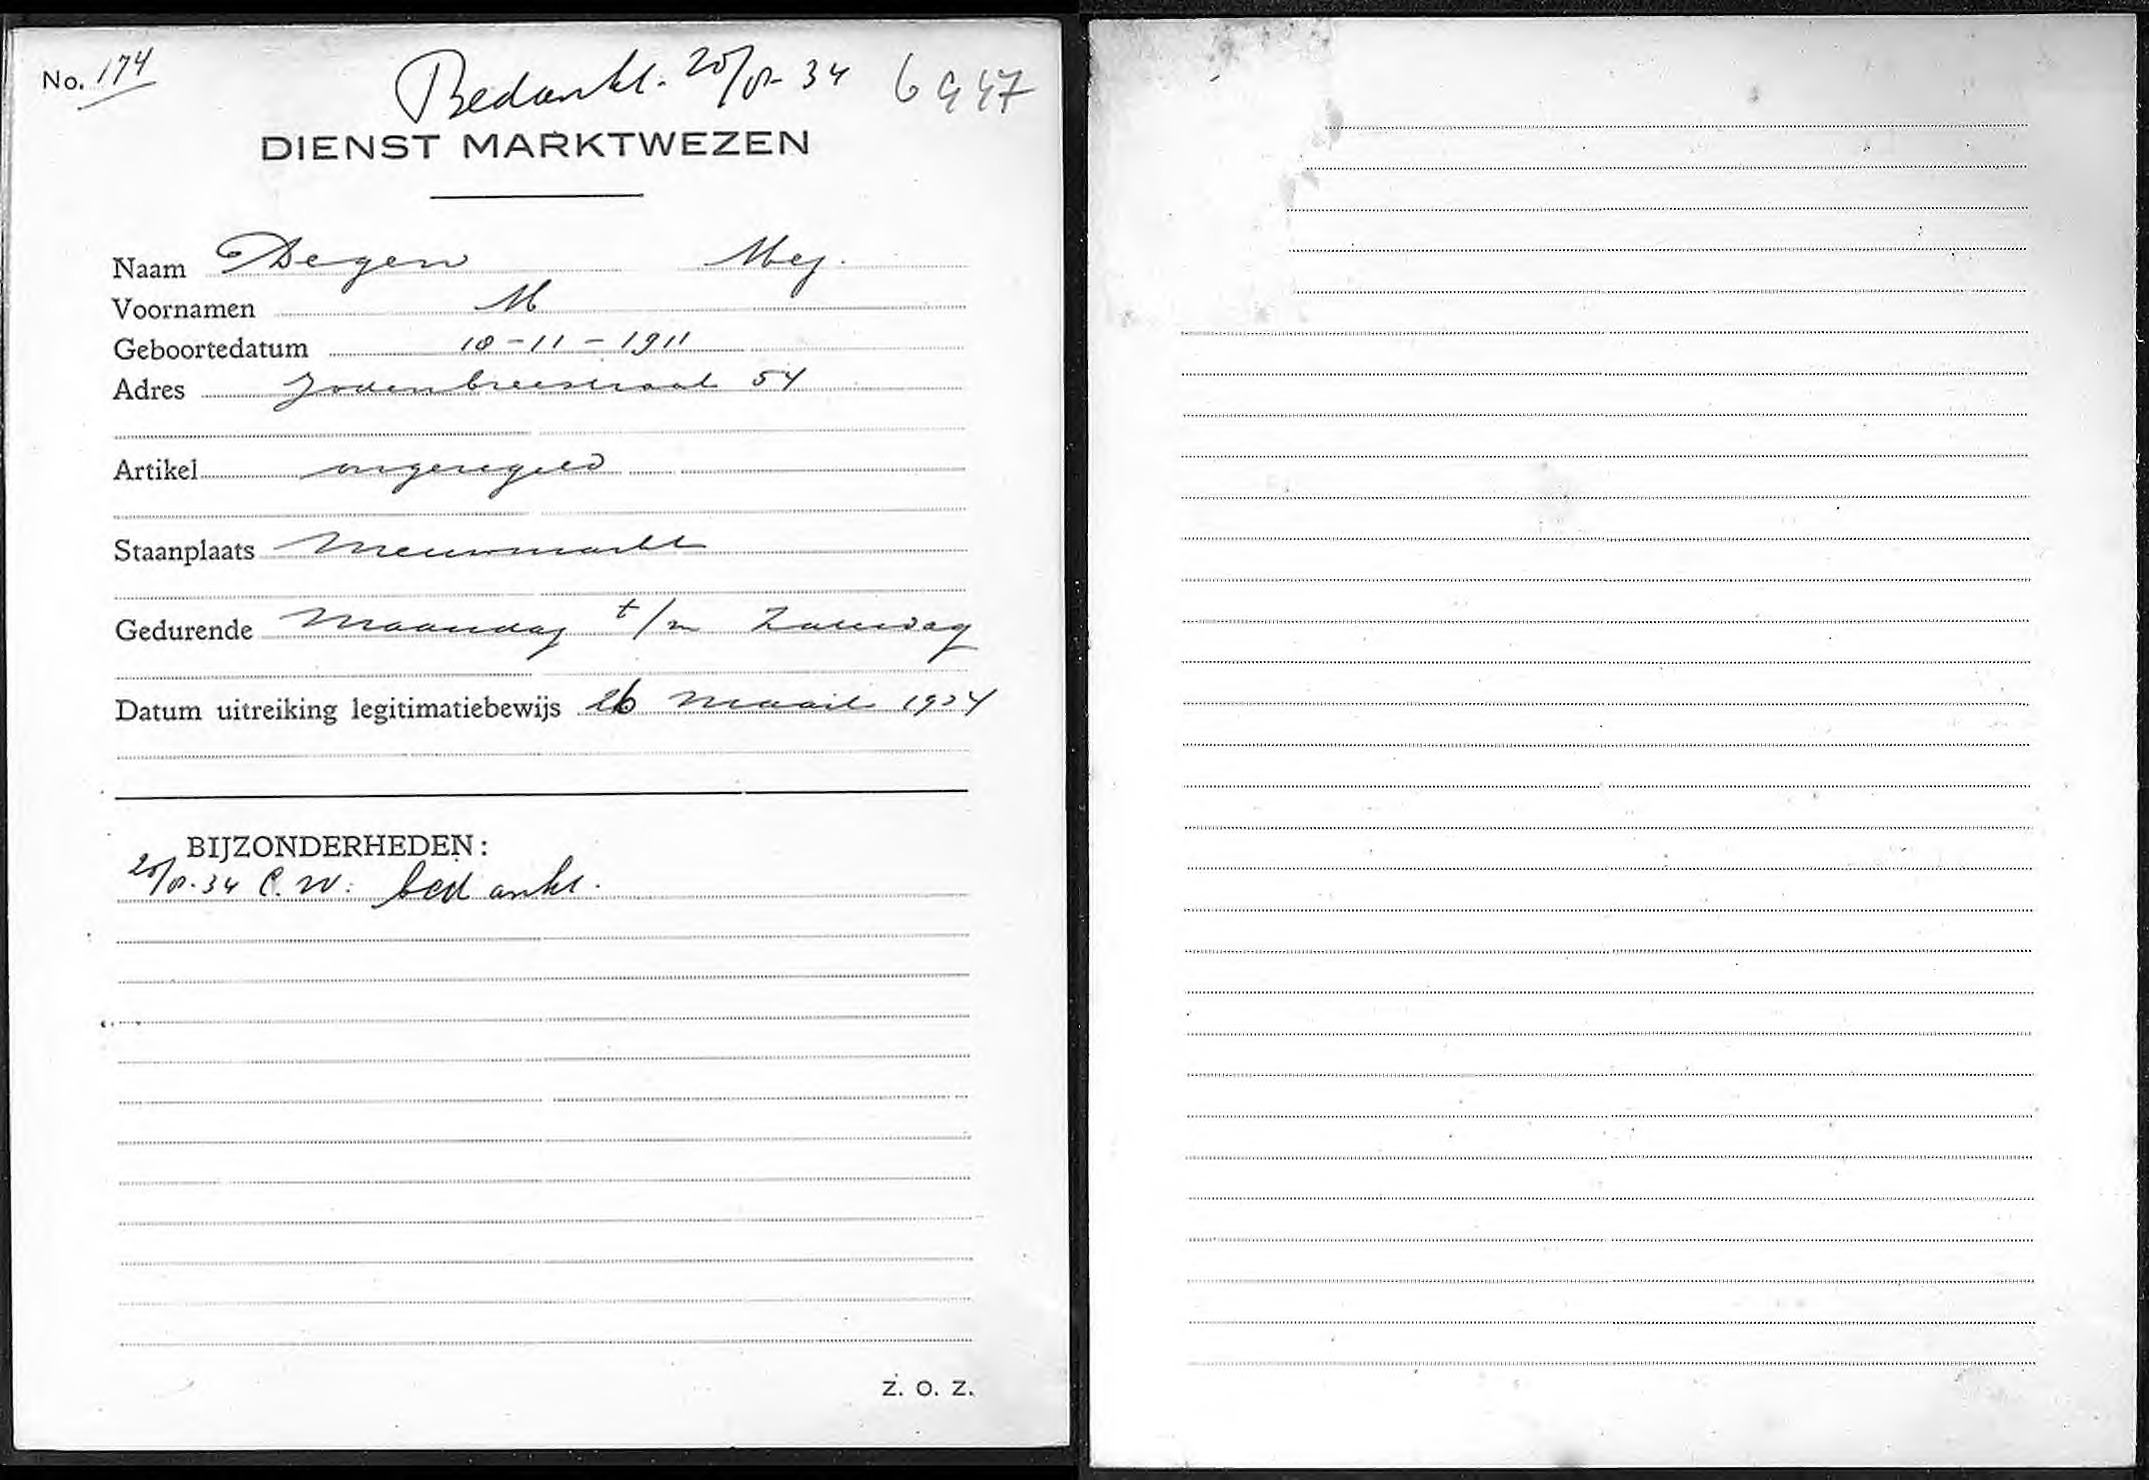 No. 174
Bedankt. 20/8-34 6947
DIENST MARKTWEZEN
Naam Degen Mej.
Voornamen M
Geboortedatum 18-11-1911
Adres Jodenbreestraat 54
Artikel ongeregeld
Staanplaats Nieuwmarkt
Gedurende Maandag t/m Zaterdag
Datum uitreiking legitimatiebewijs 26 Maart 1934
BIJZONDERHEDEN:
20/8-34 C.W: bedankt.
Z. O. Z.